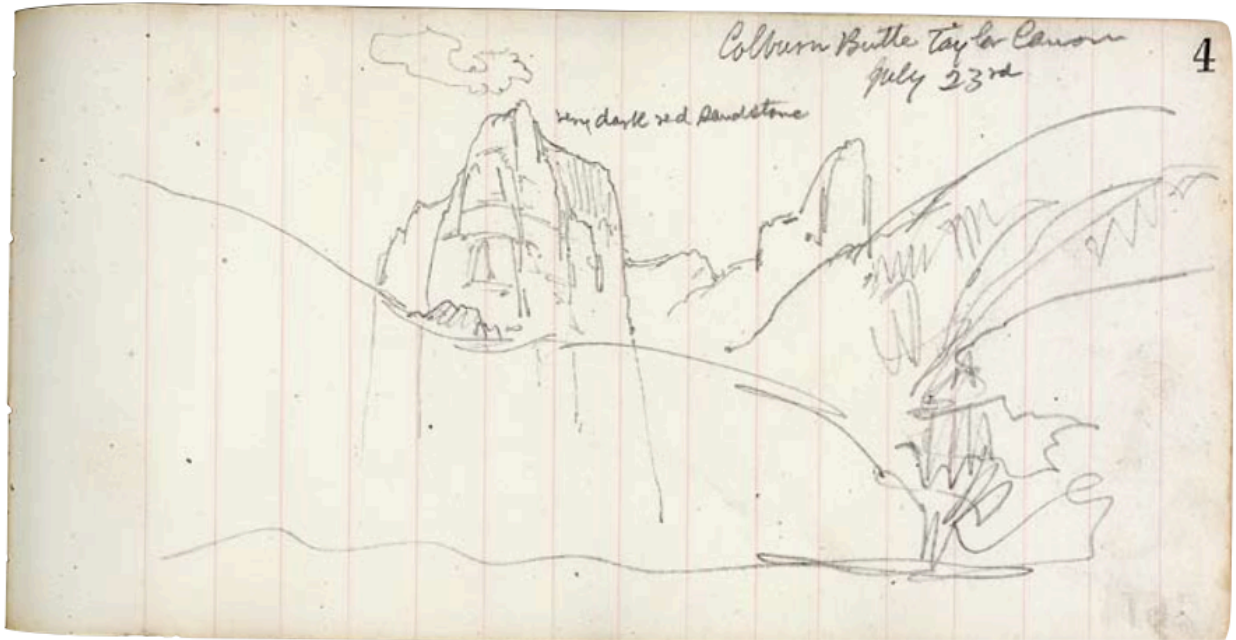 Colburn Butte Taylor Canon
July 23rd
4
very dark red Sandstone